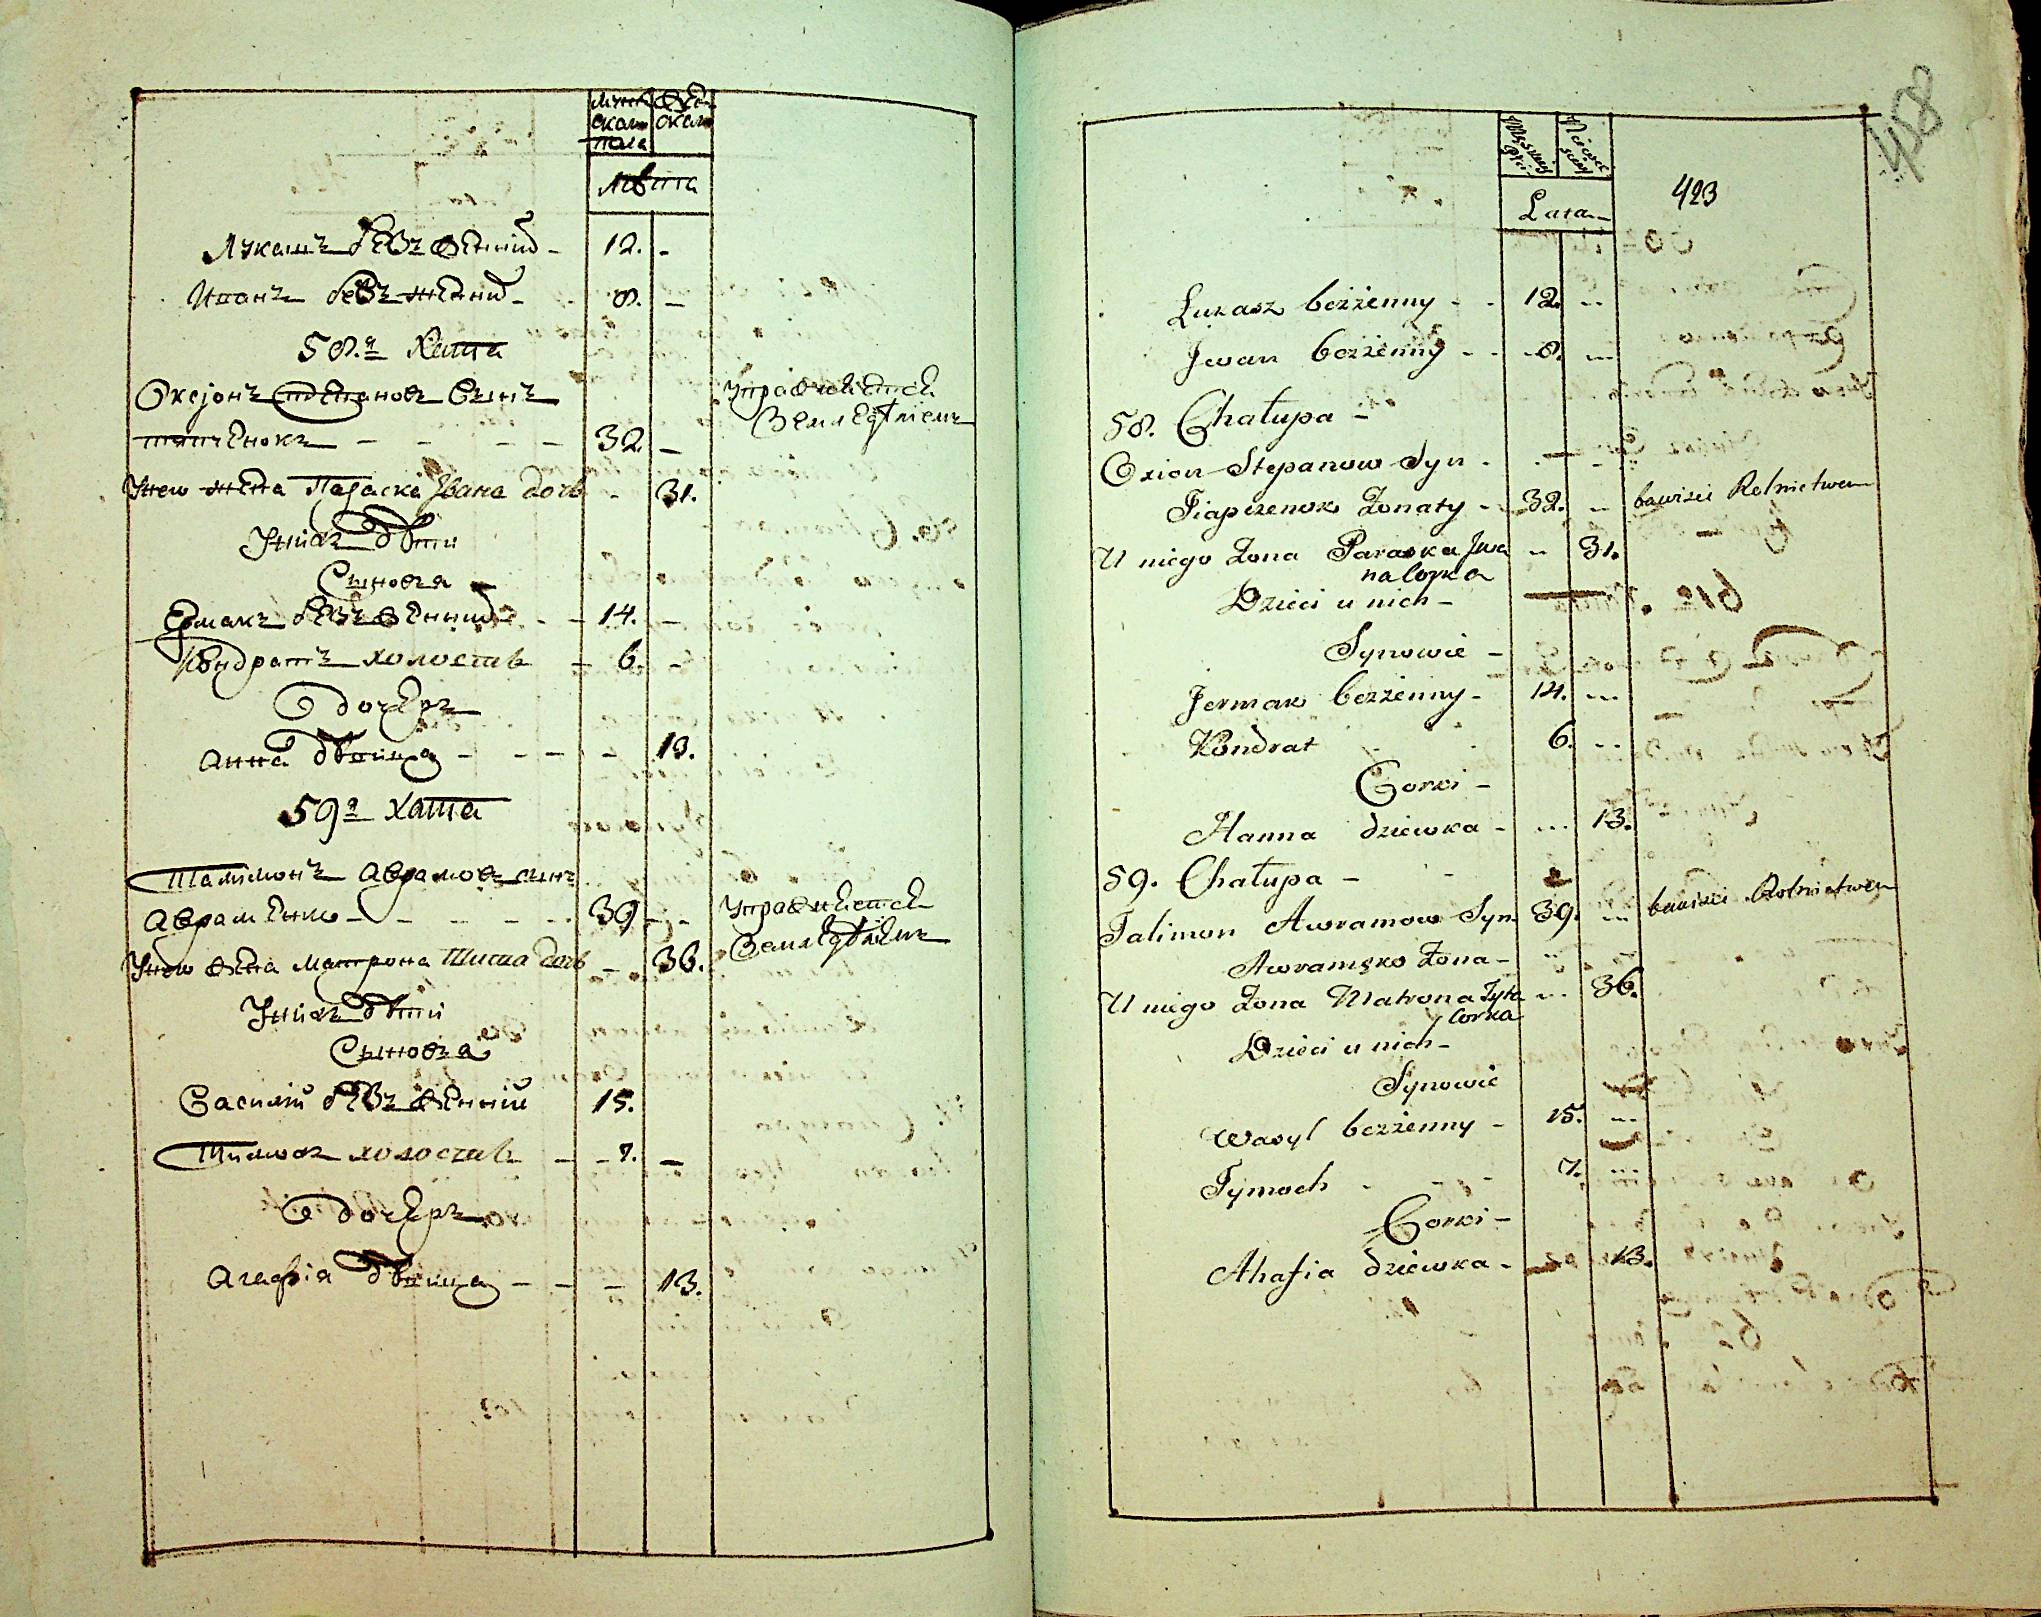 Мужеска пола
Женска
Лѣта
Лукашъ безженний - 12. -
Иванъ безженний - 8. -
58.я Хата
Оксіонъ Степановъ Синъ
тяпченокъ - - - - 32. -
Упражняется
Земледѣліемъ
У него жена Параска Івана дочь - 31.
У нихъ дѣти
Сыновья
Ермакъ безженний - - 14. -
Кондратъ холоствъ - 6. -
Дочерѣ
Анна дѣвица - - - - 13.
59я хата
Талимонъ Аврамовъ синъ
Авраменко - - - - - 39 - -
Упражняется
Земледѣліемъ
У него жена Матрона Тита дочь - 36.
У нихъ дѣти
Сыновья
Василій безженній 15.
Тимохъ холоствъ - - 7. -
Дочерѣ
Агафія дѣвица - - - 13.
458
423
Lata
Łukasz bezżenny - - 12. --
Jwan bezżenny - - - 8. --
58. Chałupa -
Oxion Stepanow Syn -
Tiapczenok Żonaty - - 32. -- bawisie Rolnictwem
U niego Żona Paraska Jwa -- 31.
na Corka
Dzieci u nich -
Synowie -
Jermak bezżenny - 14. ---
Kondrat 6. --
Corki -
Hanna dziewka - --- 13.
59. Chałupa -
Talimon Awramow Syn 39. -- bawisie Rolnictwem
Awramęko Żona - --
U niego Żona Matrona Tyta --- 36.
Corka
Dzieci u nich -
Synowie
Wasyl bezżenny - 15. ---
Tymoch - - - 7. ---
Corki -
Ahafia dziewka - 13.